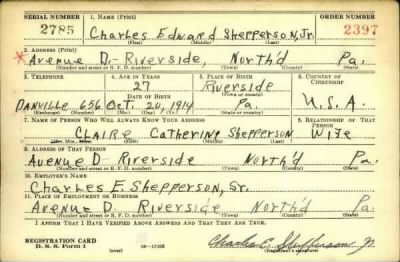 SERIAL NUMBER 1. NAME (Print) ORDER NUMBER
2785 Charles Edward Shepperson, Jr. 2397
(First) (Middle) (Last)
2. ADDRESS (Print)
* Avenue D.- Riverside, North'd Pa.
(Number and street or R. F. D. number) (Town) (County) (State)
3. TELEPHONE 4. AGE IN YEARS 5. PLACE OF BIRTH 6. COUNTRY OF CITIZENSHIP
27 Riverside
DATE OF BIRTH (Town or county)
DANVILLE 656 Oct. 20, 1914 Pa. U.S.A.
(Exchange) (Number) (Mo.) (Day) (Yr.) (State or country)
7. NAME OF PERSON WHO WILL ALWAYS KNOW YOUR ADDRESS 8. RELATIONSHIP OF THAT PERSON
CLAIRE Catherine Shepperson Wife
(First) (Middle) (Last)
9. ADDRESS OF THAT PERSON
Avenue D Riverside North'd Pa.
(Number and street or R. F. D. number) (Town) (County) (State)
10. EMPLOYER'S NAME
Charles E. Shepperson, Sr.
11. PLACE OF EMPLOYMENT OR BUSINESS
Avenue D Riverside North'd Pa.
(Number and street or R. F. D. number) (Town) (County) (State)
I AFFIRM THAT I HAVE VERIFIED ABOVE ANSWERS AND THAT THEY ARE TRUE.
REGISTRATION CARD
D. S. S. Form 1 (over) Charles E. Shepperson Jr.